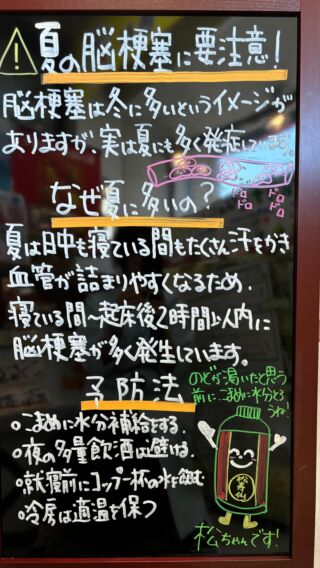 夏の脳梗塞に要注意!
脳梗塞は冬に多いというイメージが
ありますが、実は夏にも多く発症しています。
ドロドロ
ドロドロ
なぜ夏に多いの?
夏は日中も寝ている間もたくさん汗をかき
血管が詰まりやすくなるため、
寝ている間~起床後2時間以内に
脳梗塞が多く発生しています。
予防法
のどが渇いたと思う
前にこまめに水分とろ
うね!
○こまめに水分補給をする
○夜の多量飲酒は避ける
○就寝前にコップ一杯の水を飲む
○冷房は適温を保つ
松寿仙
松ちゃんです!